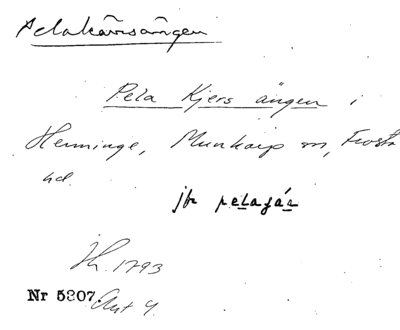 Pelakärrsängen
Pela Kjers ängen i
Henninge, Munkarp sn, Frosta
hd.
jfr pelagás
Th. 1793
Nr 5307. Ant 4.